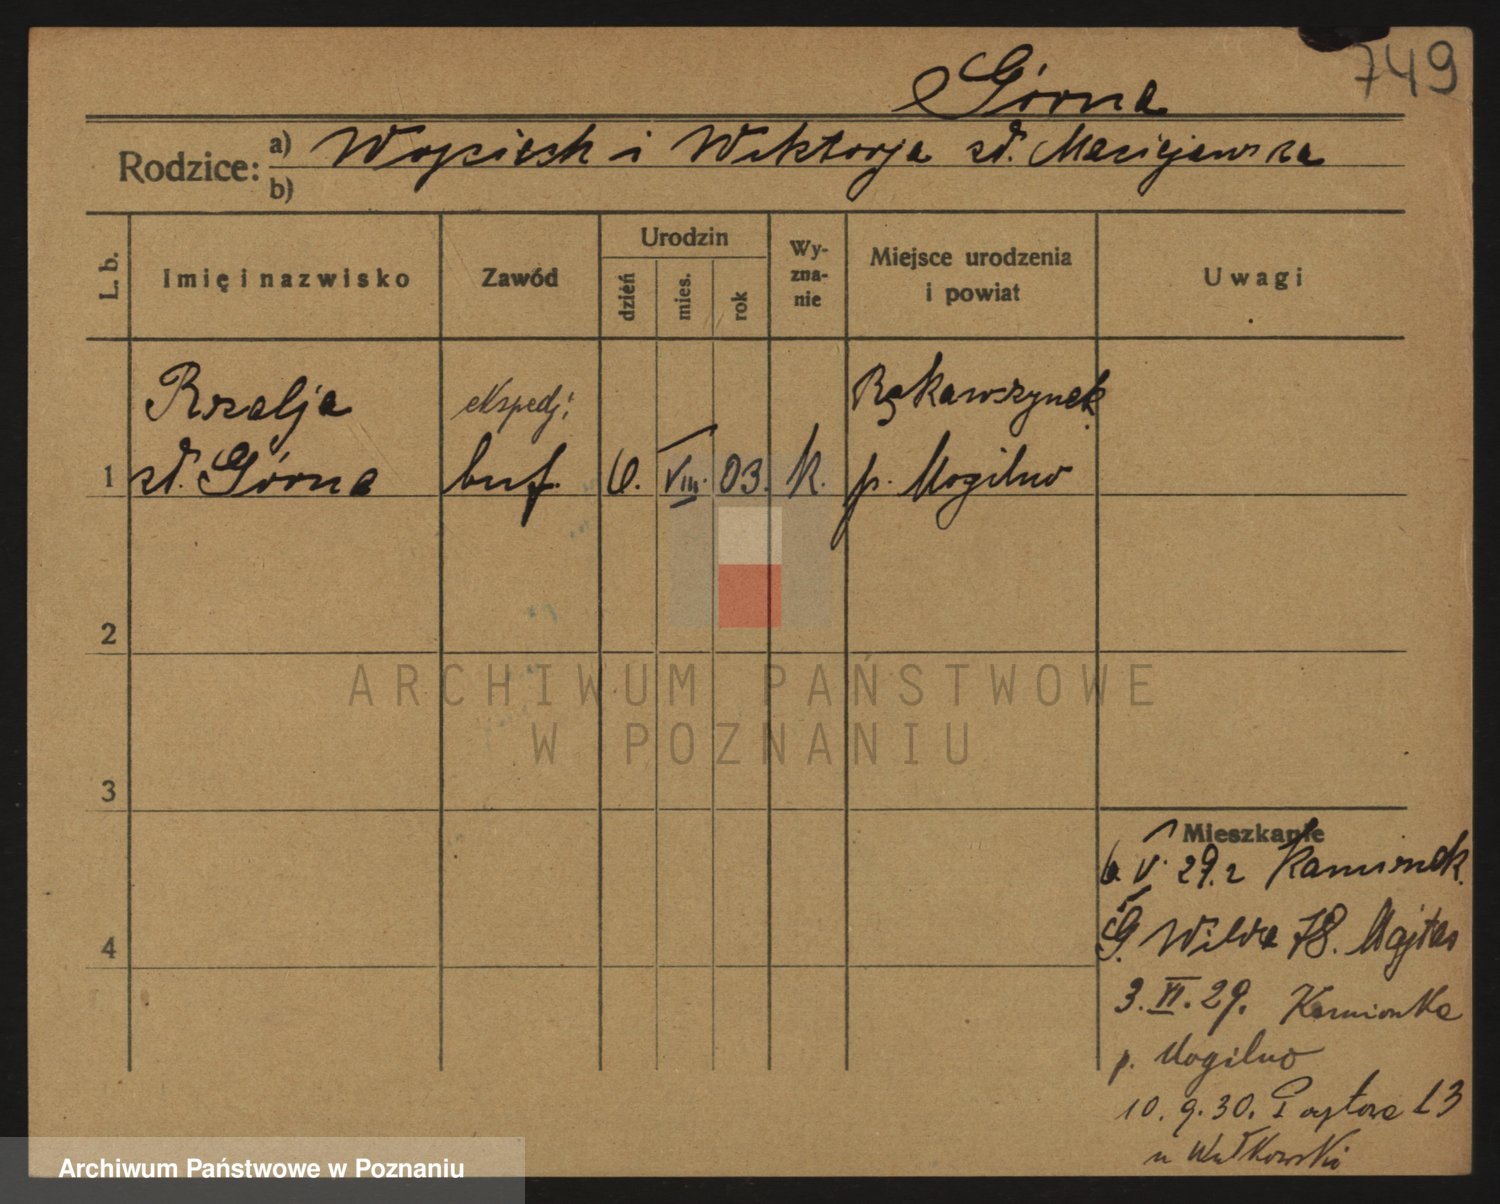 749
Górna
Rodzice: a) Wojciech i Wiktorja zd. Maciejewska
b)
L. b.
Imię i nazwisko
Zawód
Urodzin
dzień
mies.
rok
Wy-
zna-
nie
Miejsce urodzenia
i powiat
Uwagi
Rozalja
ekspedj.
Rękawczynek
1 zd. Górna buf. 6. VIII. 03. k. p. Mogilno
2
3
4
Mieszkanie
6. V. 29. z Kamionek
G. Wilda 78. Majtas
3. VI. 29. Kamionka
p. Mogilno
10. 9. 30. 13
u Wałkowski
ARCHIWUM PAŃSTWOWE
W POZNANIU
Archiwum Państwowe w Poznaniu